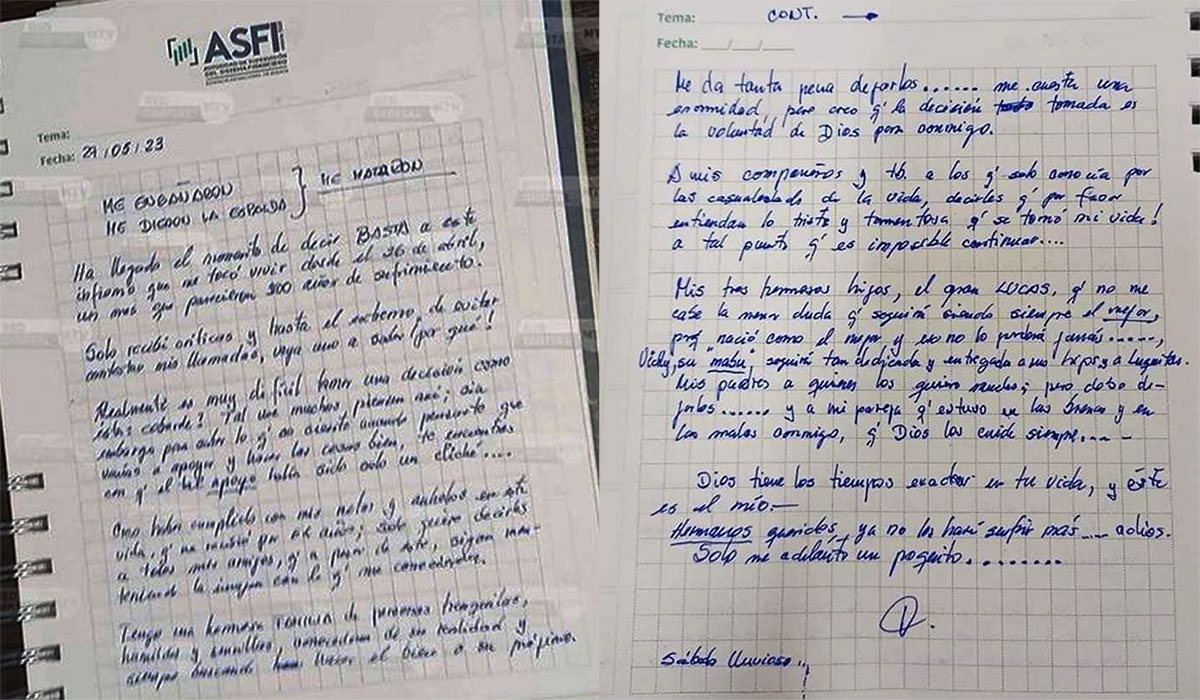 ASFI
AUTORIDAD DE SUPERVISIÓN
DEL SISTEMA FINANCIERO
Tema:
Fecha: 27/05/23
ME ENGAÑARON
ME DIERON LA ESPALDA } ME MATARON
Ha llegado el momento de decir BASTA a este
infierno que me tocó vivir desde el 26 de abril,
un mes que parecieron 300 años de sufrimiento.
Solo recibí críticas y hasta el extremo de evitar
contestar mis llamadas, vaya uno a saber por qué!
Realmente es muy difícil tomar una decisión como
ésta; cobarde? Tal vez muchos piensen así; sin
embargo para saber lo q' es cuando pensaste que
vanías a apoyar y hacer las cosas bien, te encuentras
con q' el tal apoyo había sido solo un cliché....
Creo haber cumplido con mis metas y anhelos en esta
vida, q' no por años; solo quiero decirles
a todos mis amigos, q' a pesar de esto, sigan man-
teniendo la imagen con la q' me conocieron.
Tengo una hermosa FAMILIA de personas tranquilas,
humildes y sencillas, conocedoras de su realidad y
siempre buscando hacer el bien a su prójimo.
Tema: CONT. →
Fecha: ___/___/___
Me da tanta pena dejarlos...... me cuesta una
enormidad, pero creo q' la decisión tomada es
la voluntad de Dios para conmigo.
A mis compañeros y tb. a los q' solo conocía por
las casualidades de la vida, decirles q' por favor
entiendan lo triste y tormentosa q' se tornó mi vida!
a tal punto q' es imposible continuar....
Mis tres hermosos hijos, el gran LUCAS, q' no me
cabe la menor duda q' seguirá siendo siempre el mejor,
porq' nació como el mejor y eso no lo perderá jamás.....,
Vichy, su "mabu", seguirá tan dedicada y entregada a sus hijos y a Luquitas.
Mis padres a quienes los quiero mucho; pero debo de-
jarlos...... y a mi pareja q' estuvo en las buenas y en
las malas conmigo, q' Dios los cuide siempre....
Dios tiene los tiempos exactos en tu vida, y éste
es el mío.-
Hermanos queridos, ya no los haré sufrir más.... adios.
Solo me adelanto un poquito........
Sábado lluvioso...